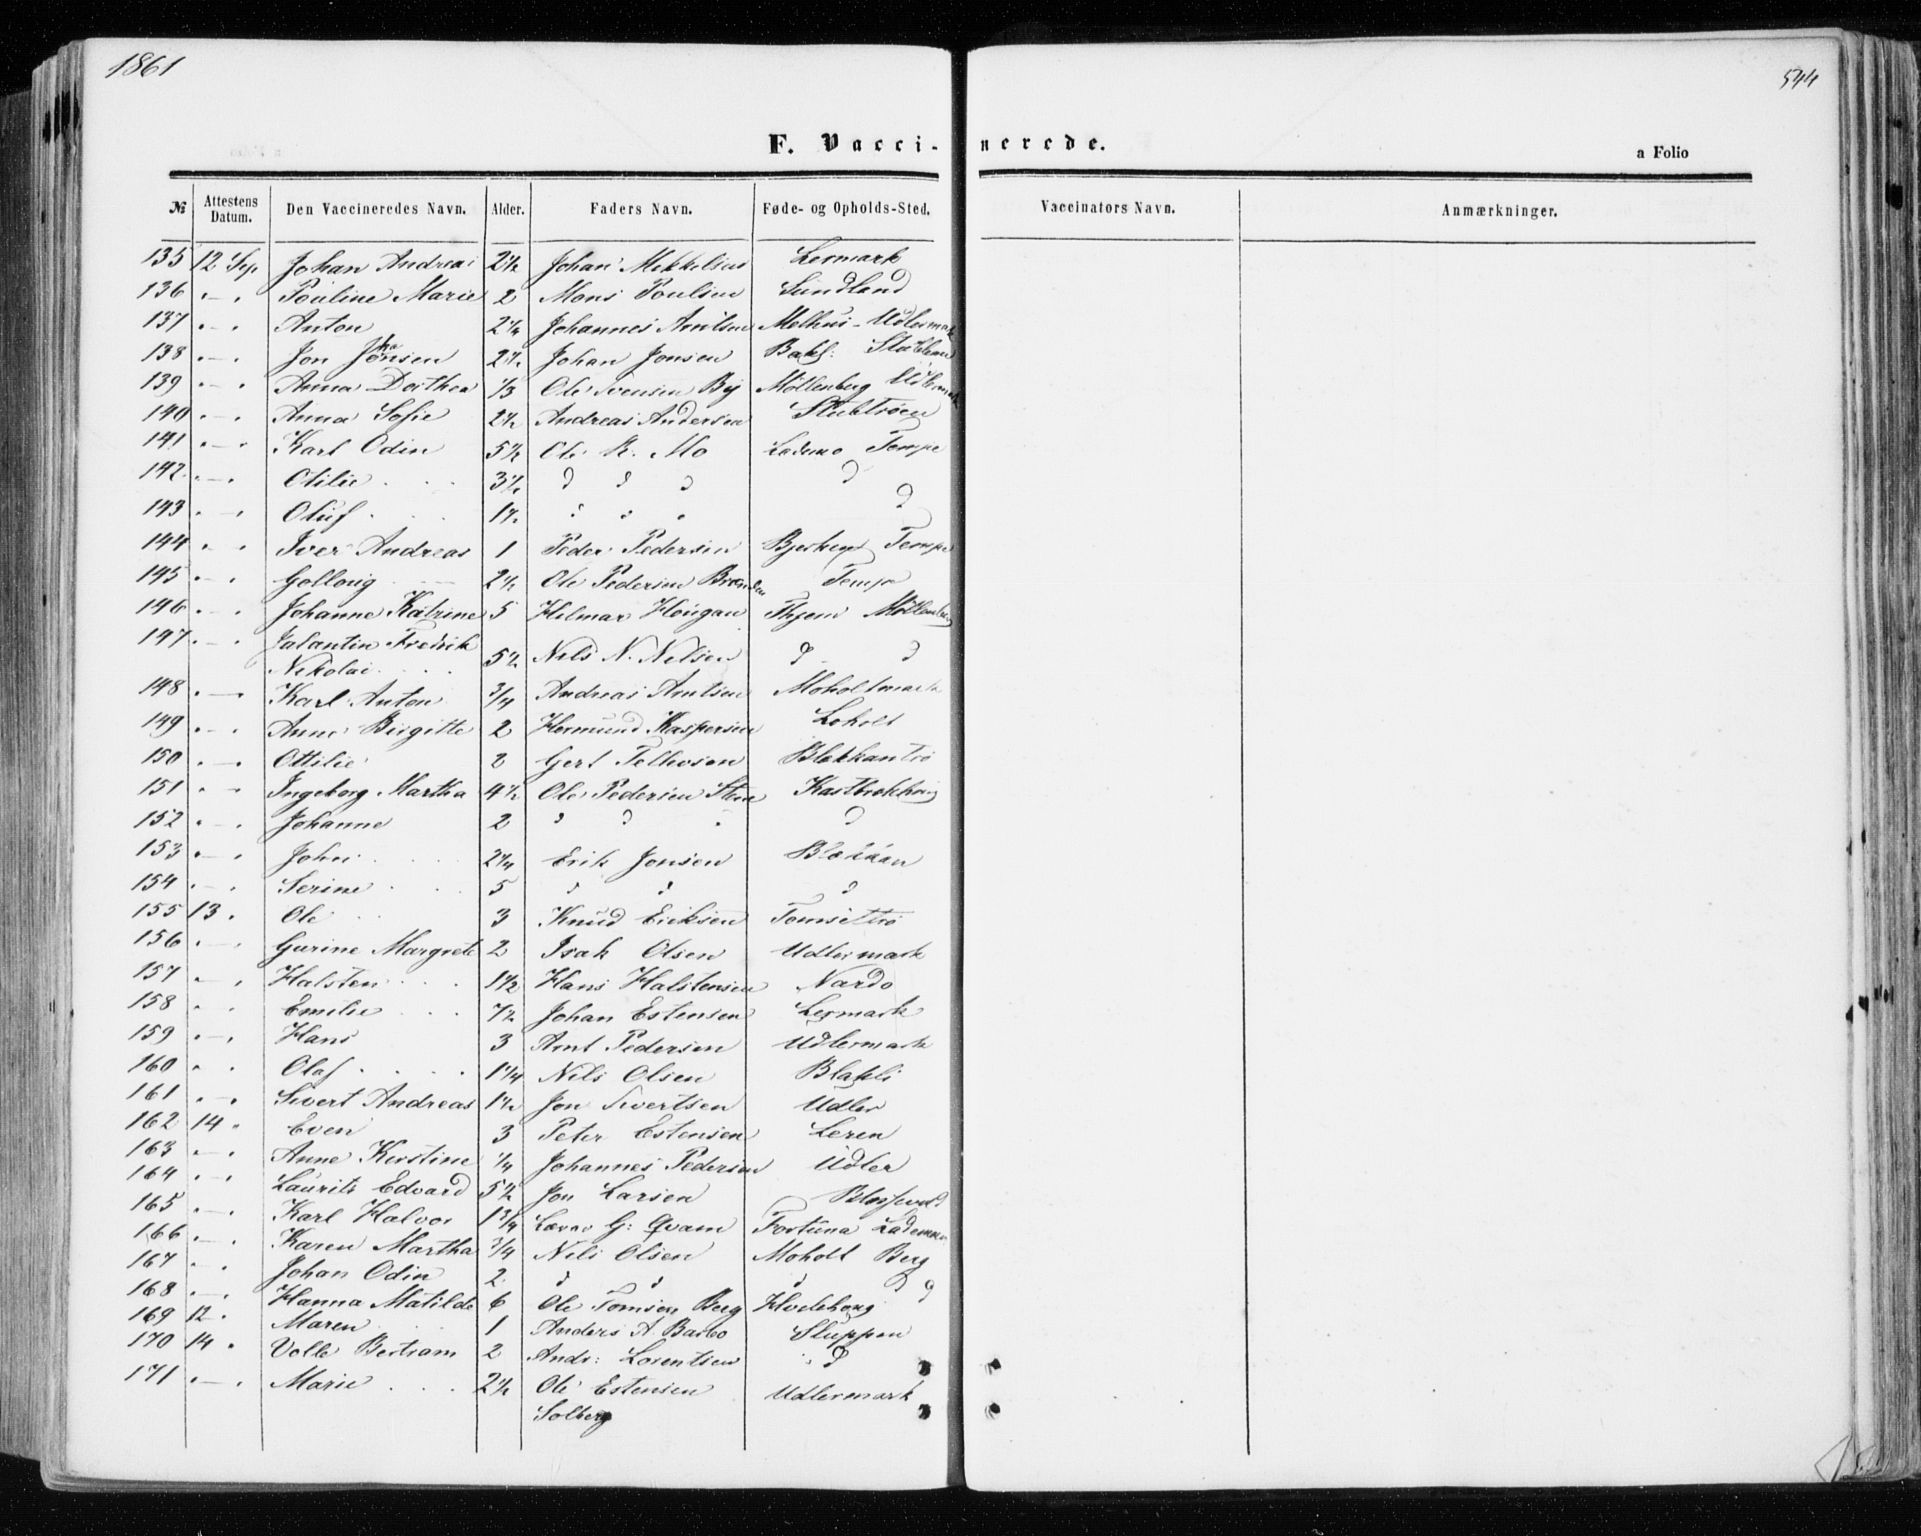 1861
544
F. Vacci- nerede.
a Folio
№ Attestens Datum. Den Vaccineredes Navn. Alder. Faders Navn. Føde- og Opholds-Sted. Vaccinators Navn. Anmærkninger.
135 12 Sep Johan Andreas 2½ Johan Mikkelsen Lermark
136 " — " Pouline Marie 2 Mons Poulsen Sundland
137 " — " Anton 2¼ Johannes Arntsen Melhus - Udlermark
138 " — " Jon Jonsen 2½ Johan Jonsen Bakl:
139 " — " Anna Dorthea ⅓ Ole Svensen By Møllenberg Udlermark
140 " — " Anna Sofie 2½ Andreas Andersen Stubtrøen
141 " — " Karl Odin 5½ Ole R. Mo Lademo Tempe
142 " — " Otilie 3½ d d d d
143 " — " Oluf 1½ " " " d
144 " — " Iver Andreas 1 Peder Pedersen Tempe
145 " — " Gollong 2½ Ole Pedersen Brænden Tempe
146 " — " Johanne Katrine 5 Hilmar Hougan Thjem Møllenberg
147 " — " Valantin Fredrik
Nikolai 5½ Nils N. Nilsen d - d
148 " — " Karl Anton ¾ Andreas Arntsen Moholtmark
149 " — " Anne Birgitte 2 Hermund Kaspersen Loholt
150 " — " Ottilie 2 Gert Blekkantrø
151 " — " Ingeborg Martha 4½ Ole Pedersen Steen
152 " — " Johanne 2 d d " d
153 " — " John 2¼ Erik Jonsen Blækkan
154 " — " Serine 5 d d d
155 13 " Ole 3 Knud Eriksen Tomsettrø
156 " — " Gurine Margrete 2 Isak Olsen Udlermark
157 " — " Halsten 1½ Hans Halstensen Nardo
158 " " Emilie 7½ Johan Estensen Lermark
159 " — " Hans 3 Arnt Pedersen Udlermark
160 " " Olaf 1¼ Nils Olsen Blakli
161 " — " Sivert Andreas 1½ Jon Sivertsen Udler
162 14 " Even 3 Peter Estensen Leren
163 " — " Anne Kirstine ¼ Johannes Pedersen Udler
164 " — " Laurits Edvard 5½ Jon Larsen
165 " — " Karl Halvor 1¾ Lavar G: Qvam Fortuna Lademoen
166 " — " Karen Martha ¾ Nils Olsen Moholt Berg
167 " — " Johan Odin 2 d d d d
168 " — " Hanna Matilde 6 Ole Tomsen Berg d
169 12 " Maren 1 Anders A. Barbo Sluppen
170 14 " Volle Bertram 2 Andr: Lorentsen " d
171 " — " Marie 2½ Ole Estensen Udlermark
Solberg